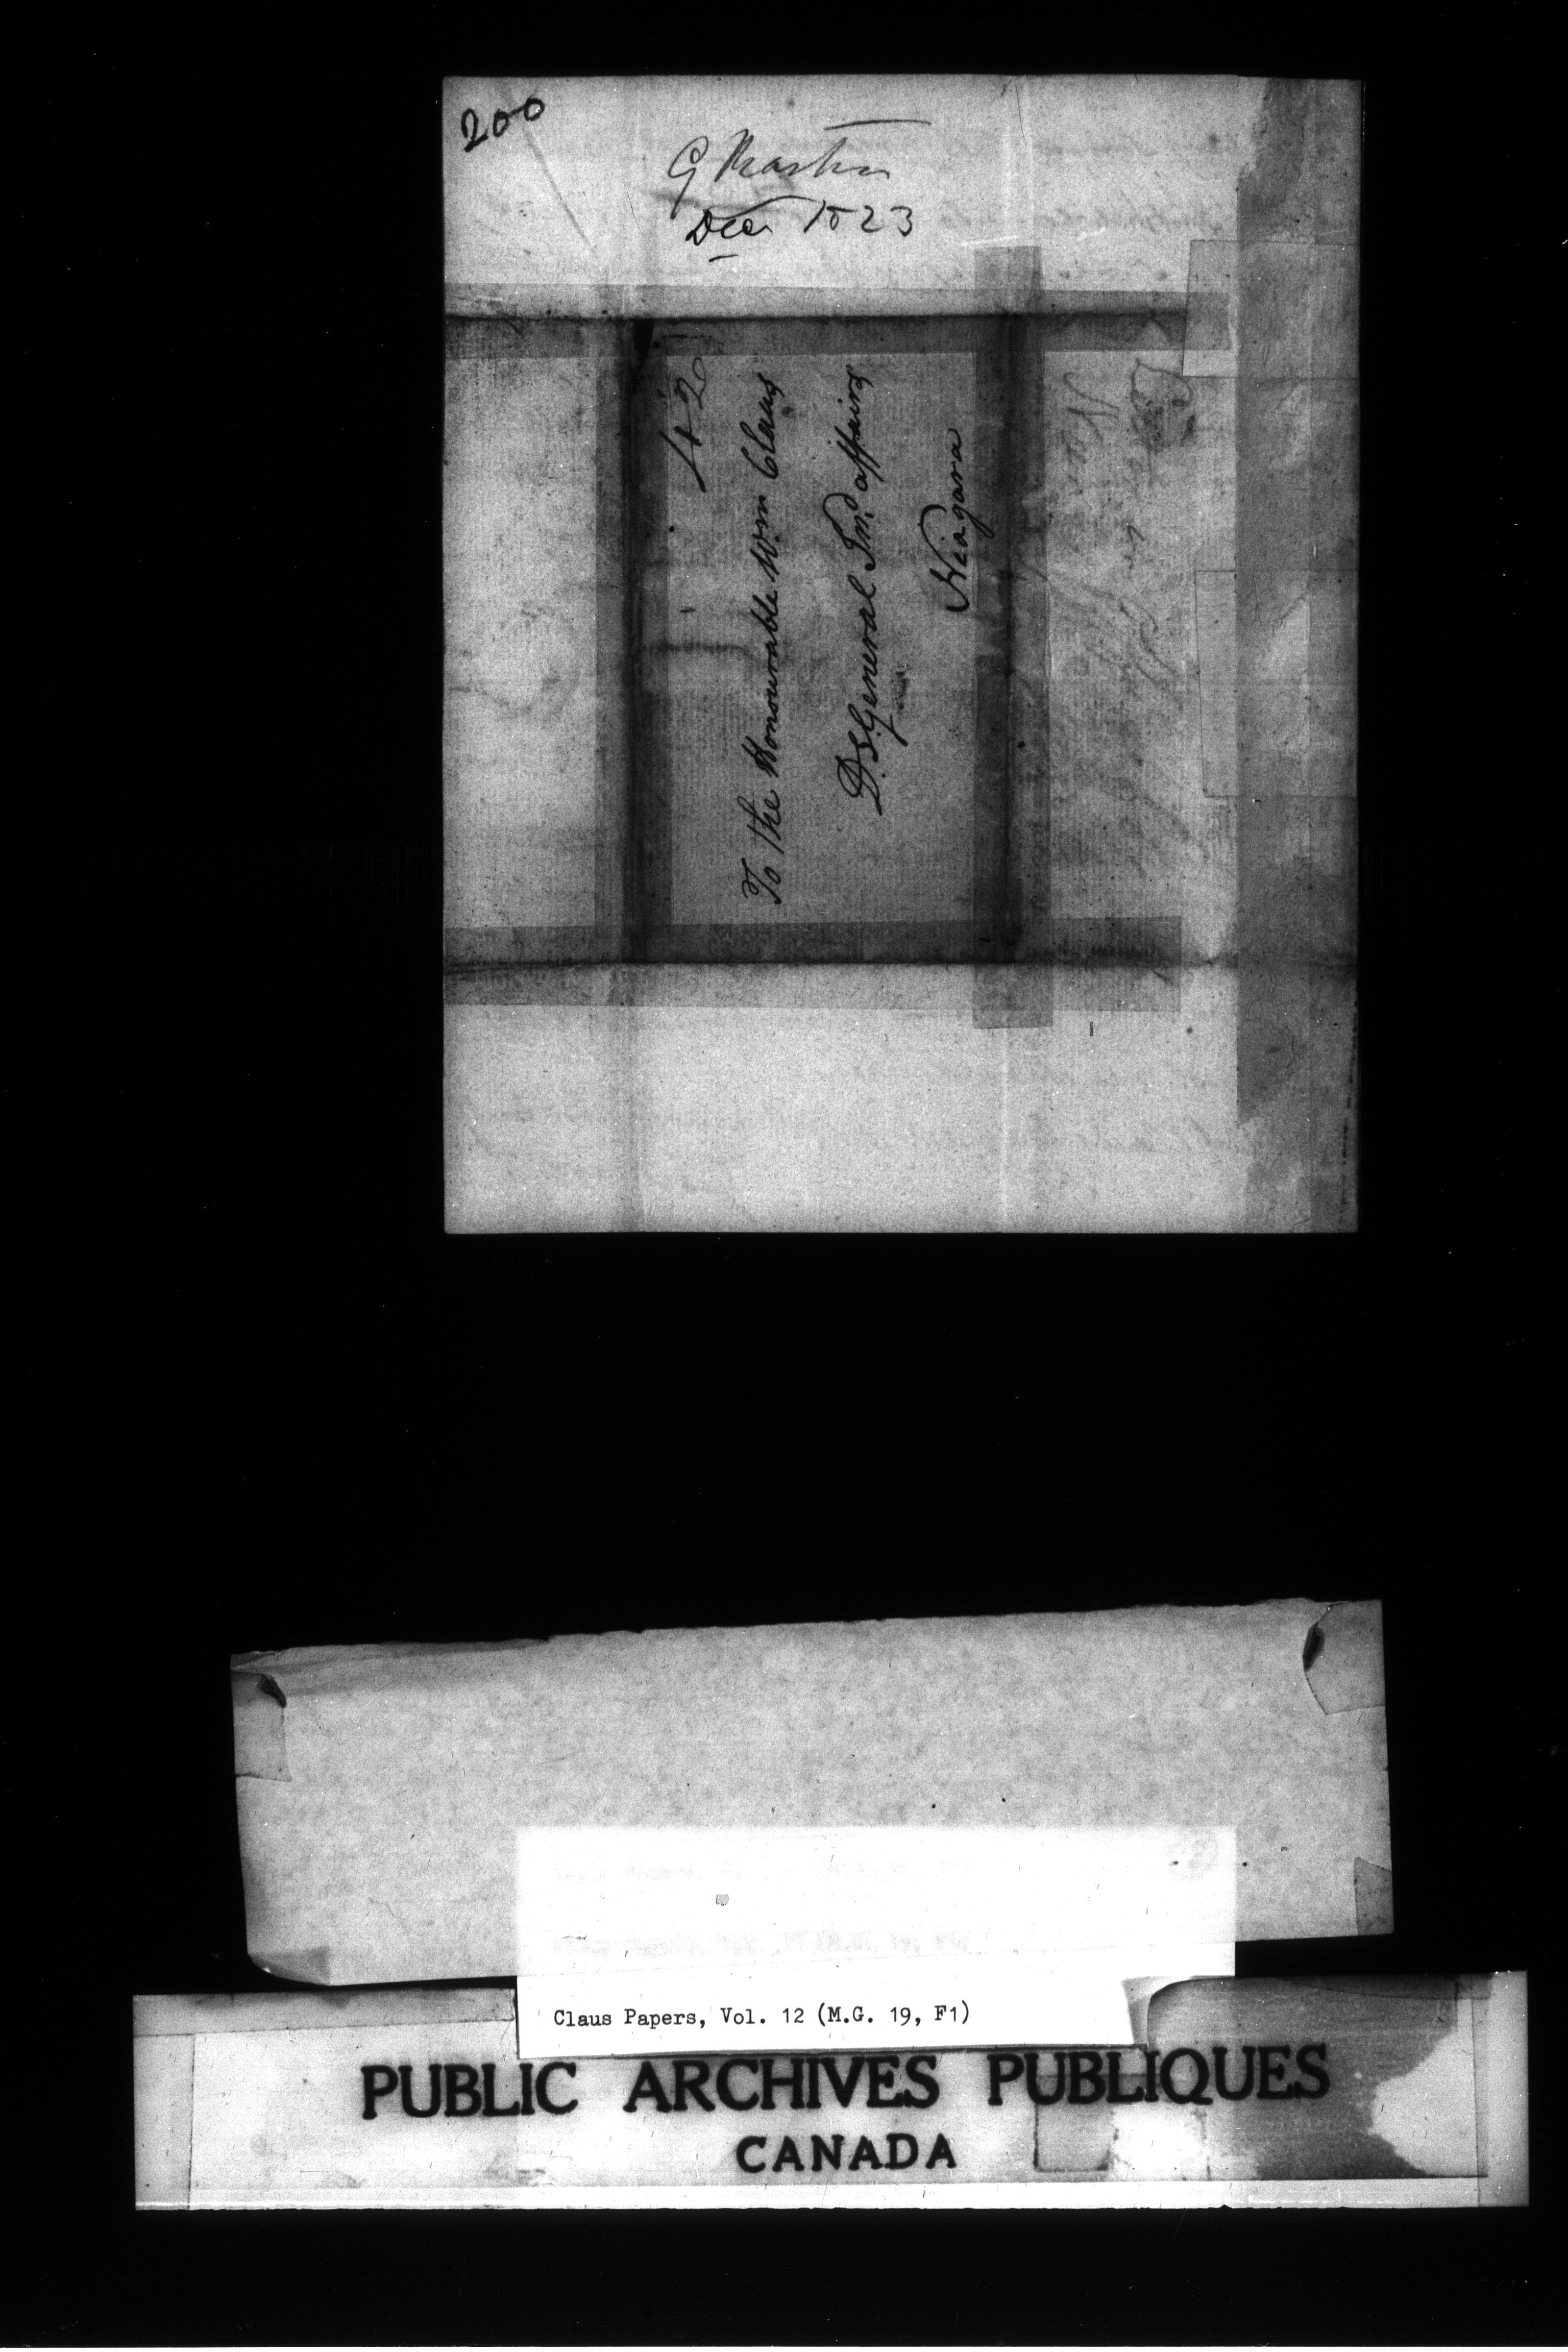 200
G Martin
Decr 1823
To the Honourable Wm Claus
D.S. General Ind affairs
Niagara
Claus Papers, Vol. 12 (M.G. 19, F1)
PUBLIC ARCHIVES PUBLIQUES
CANADA